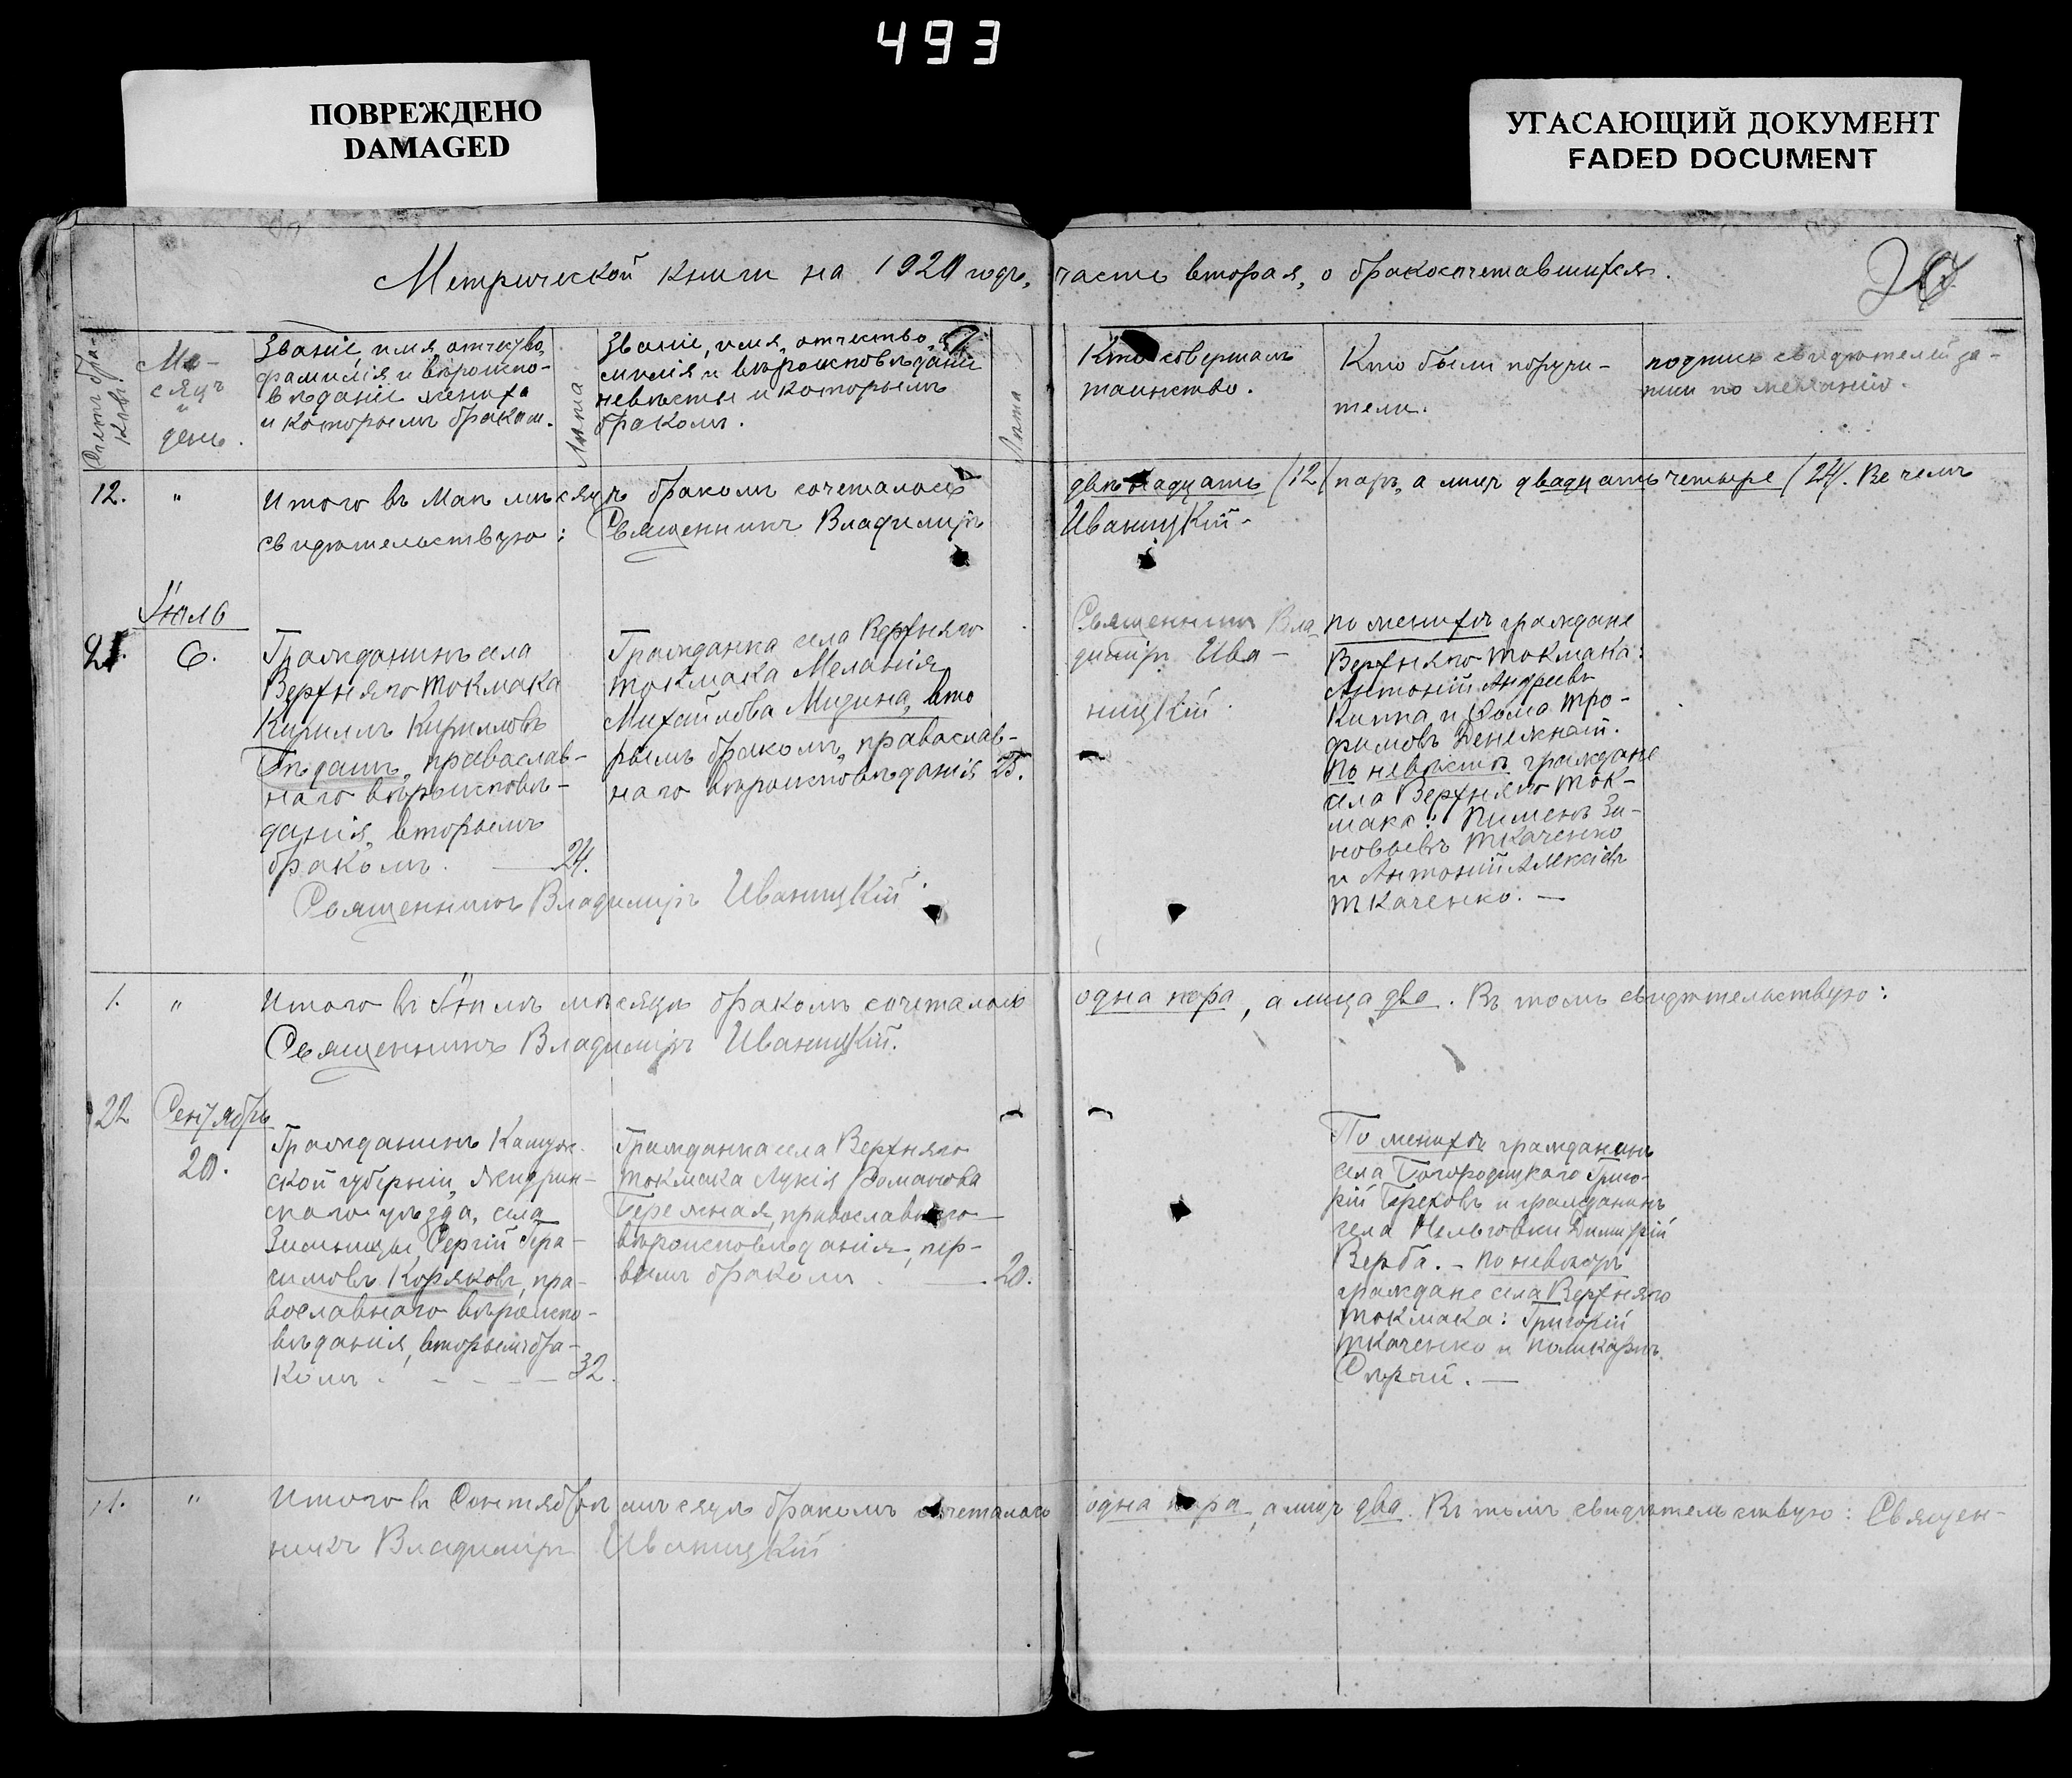 493
ПОВРЕЖДЕНО
DAMAGED
УГАСАЮЩИЙ ДОКУМЕНТ
FADED DOCUMENT
Метрической книги на 1920 годъ, часть вторая, о бракосочетавшихся.
Счетъ бра-
ковъ.
Мѣ-
сяцъ
и
день.
Званіе, имя, отчество,
фамилія и вѣроиспо-
вѣданіе жениха
и которымъ бракомъ.
Лѣта
Званіе, имя, отчество, фа-
милія и вѣроисповѣданіе
невѣсты и которымъ
бракомъ.
Лѣта
Кто совершалъ
таинство.
Кто были поручи-
тели.
подпись свидѣтелей за-
писи по желанію.
12. " Итого въ Маѣ мѣсяцѣ бракомъ сочеталось двѣнадцать (12) паръ, а лицъ двадцать четыре (24). Въ чемъ
свидѣтельствую: Священникъ Владиміръ Иваницкій.
Іюль
21.
6.
Гражданинъ села
Верхняго Токмака
Кириллъ Кирилловъ
православ-
наго вѣроисповѣ-
данія, вторымъ
бракомъ. 24.
Гражданка села Верхняго
Токмака Меланія
Михайлова Мидина, вто
рымъ бракомъ, православ-
наго вѣроисповѣданія 25.
Священникъ Вла-
диміръ Ива-
ницкій.
по женихѣ граждане
Верхняго Токмака:
Антоній Андреевъ
Кипа, и Фома Тро-
фимовъ Денежный.
По невѣстѣ граждане
села Верхняго Ток-
мака: Пименъ Зи-
новьевъ Ткаченко
и Антоній Алексѣевъ
Ткаченко. —
Священникъ Владиміръ Иваницкій.
1. " Итого въ Іюлѣ мѣсяцѣ бракомъ сочеталось одна пара, а лица два. Въ томъ свидѣтельствую:
Священникъ Владиміръ Иваницкій.
22
Сентябрь
20.
Гражданинъ
ской губерніи,
скаго уѣзда, села
Зимницы, Сергій Гера-
симовъ Коряковъ, пра-
вославнаго вѣроиспо-
вѣданія, вторымъ бра-
комъ. - - - - 32.
Гражданка села Верхняго
Токмака Лукія Романова
Бережная, православнаго
вѣроисповѣданія, пер-
вымъ бракомъ. 20.
По женихѣ гражданинъ
села Богородицкаго Григо-
рій Тереховъ и гражданинъ
села Нельговки Димитрій
Верба. - По невѣстѣ
граждане села Верхняго
Токмака: Григорій
Ткаченко и Поликарпъ
Сѣрый. —
1. " Итого въ Сентябрѣ мѣсяцѣ бракомъ сочеталось одна пара, а лицъ два. Въ томъ свидѣтельствую: Священ-
никъ Владиміръ Иваницкій